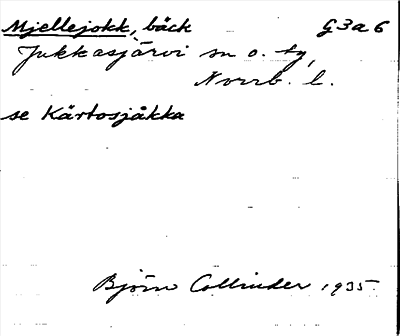 Mjellejokk, bäck G3a6
Jukkasjärvi sn o. tg,
Norrb. l.
se Kårtosjåkka
Björn Collinder 1935